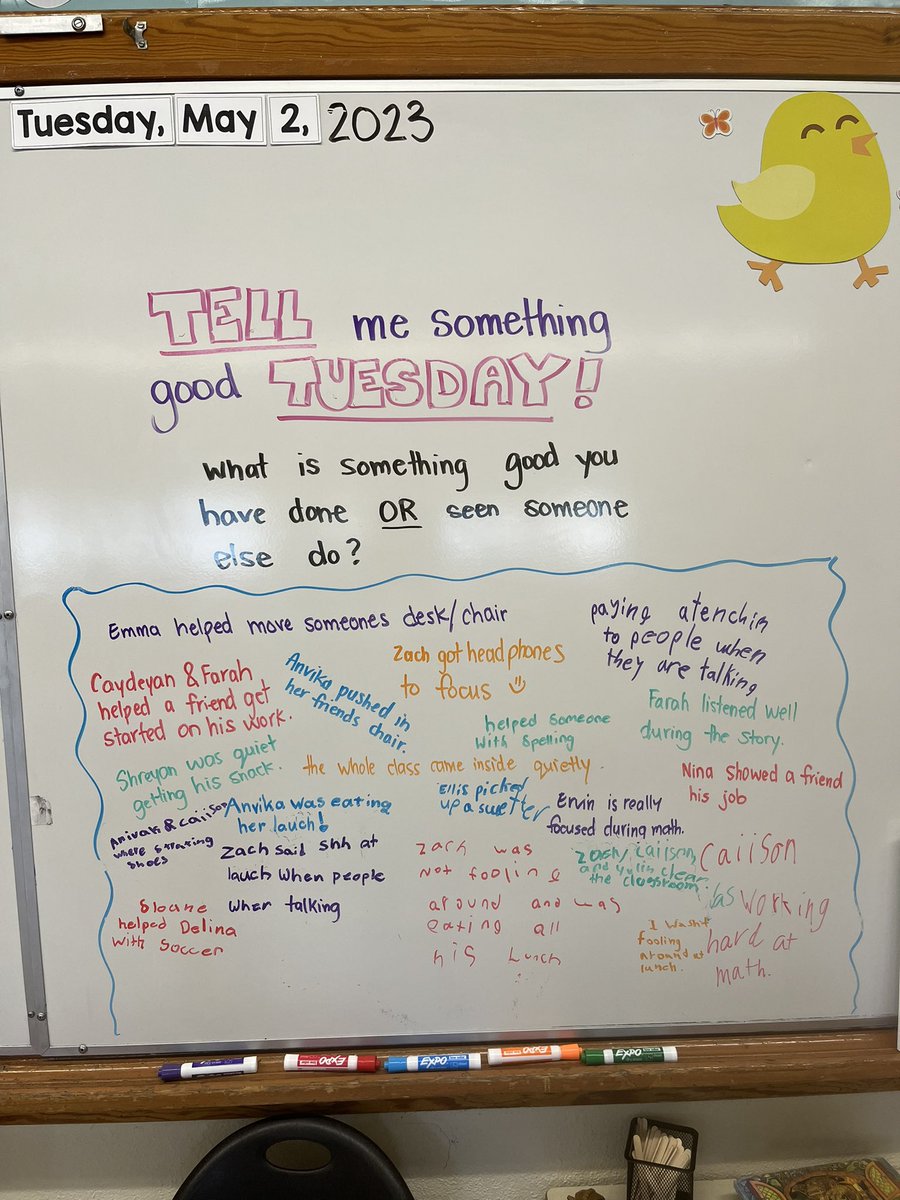 Tuesday, May 2, 2023
TELL me something
good TUESDAY!
What is something good you
have done OR seen someone
else do?
Emma helped move someones desk/chair
paying atenchin
to people when
they are talking
Caydeyan & Farah
helped a friend get
started on his work.
Anvika pushed in
her friends chair.
Zach got headphones
to focus
Farah listened well
during the story.
helped someone
with spelling
Shreyan was quiet
getting his snack.
the whole class came inside quietly.
Nina showed a friend
his job
Anvika was eating
her lauch!
Ellis picked
up a swetter
Ervin is really
focused during math.
& Caiison
where
shoes
Zach said shh at
lauch when people
wher talking
Zach was
not fooling
around and was
eating all
his Lunch
Zach, Caiison,
and Yulin clean
the classroom.
Caiison
was working
hard at
math.
Sloane
helped Delina
with Soccer
I wasnt
fooling
around at
lunch.
EXPO
EXPO
EXPO